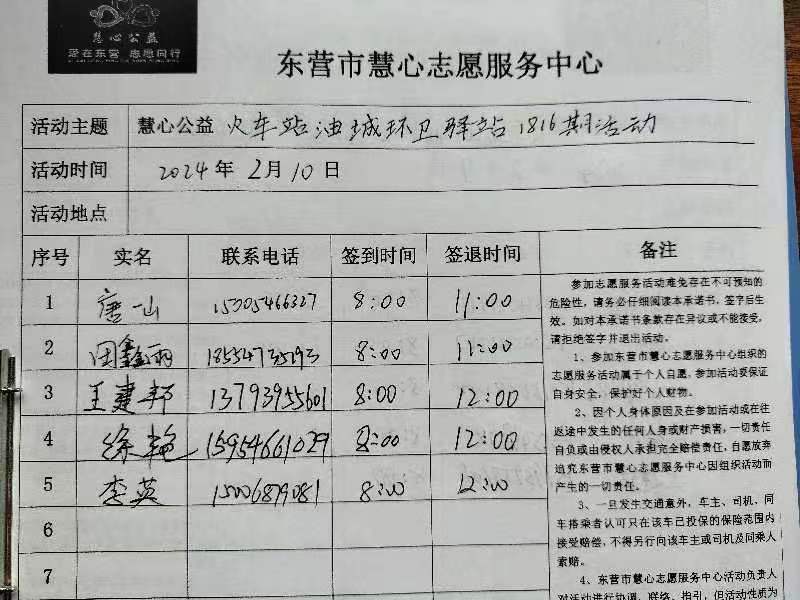 慧心公益
爱在东营 志愿同行
东营市慧心志愿服务中心
活动主题 慧心公益 火车站油城环卫驿站1816期活动
活动时间 2024年2月10日
活动地点
序号 实名 联系电话 签到时间 签退时间 备注
1 唐一山 15005466327 8:00 11:00
2 田鑫丽 18554735193 8:00 11:00
3 王建邦 13793955601 8:00 12:00
4 徐艳 15954661029 8:00 12:00
5 李英 15006879081 8:00 12:00
6
7
参加志愿服务活动难免存在不可预知的
危险性，请务必仔细阅读本承诺书，签字后生
效。如对本承诺书条款存在异议或不能接受，
请拒绝签字并退出活动。
1、参加东营市慧心志愿服务中心组织的
志愿服务活动属于个人自愿，参加活动要保证
自身安全，保护好个人财物。
2、因个人身体原因及在参加活动或在往
返途中发生的任何人身或财产损害，一切责任
自负或由侵权人承担完全赔偿责任，自愿放弃
追究东营市慧心志愿服务中心因组织活动而
产生的一切责任。
3、一旦发生交通意外，车主、司机、同
车搭乘者认可只在该车已投保的保险范围内
接受赔偿，不得另行向该车主或司机及同乘人
索赔。
4、东营市慧心志愿服务中心活动负责人
对活动进行协调、联络、指引，但活动性质为